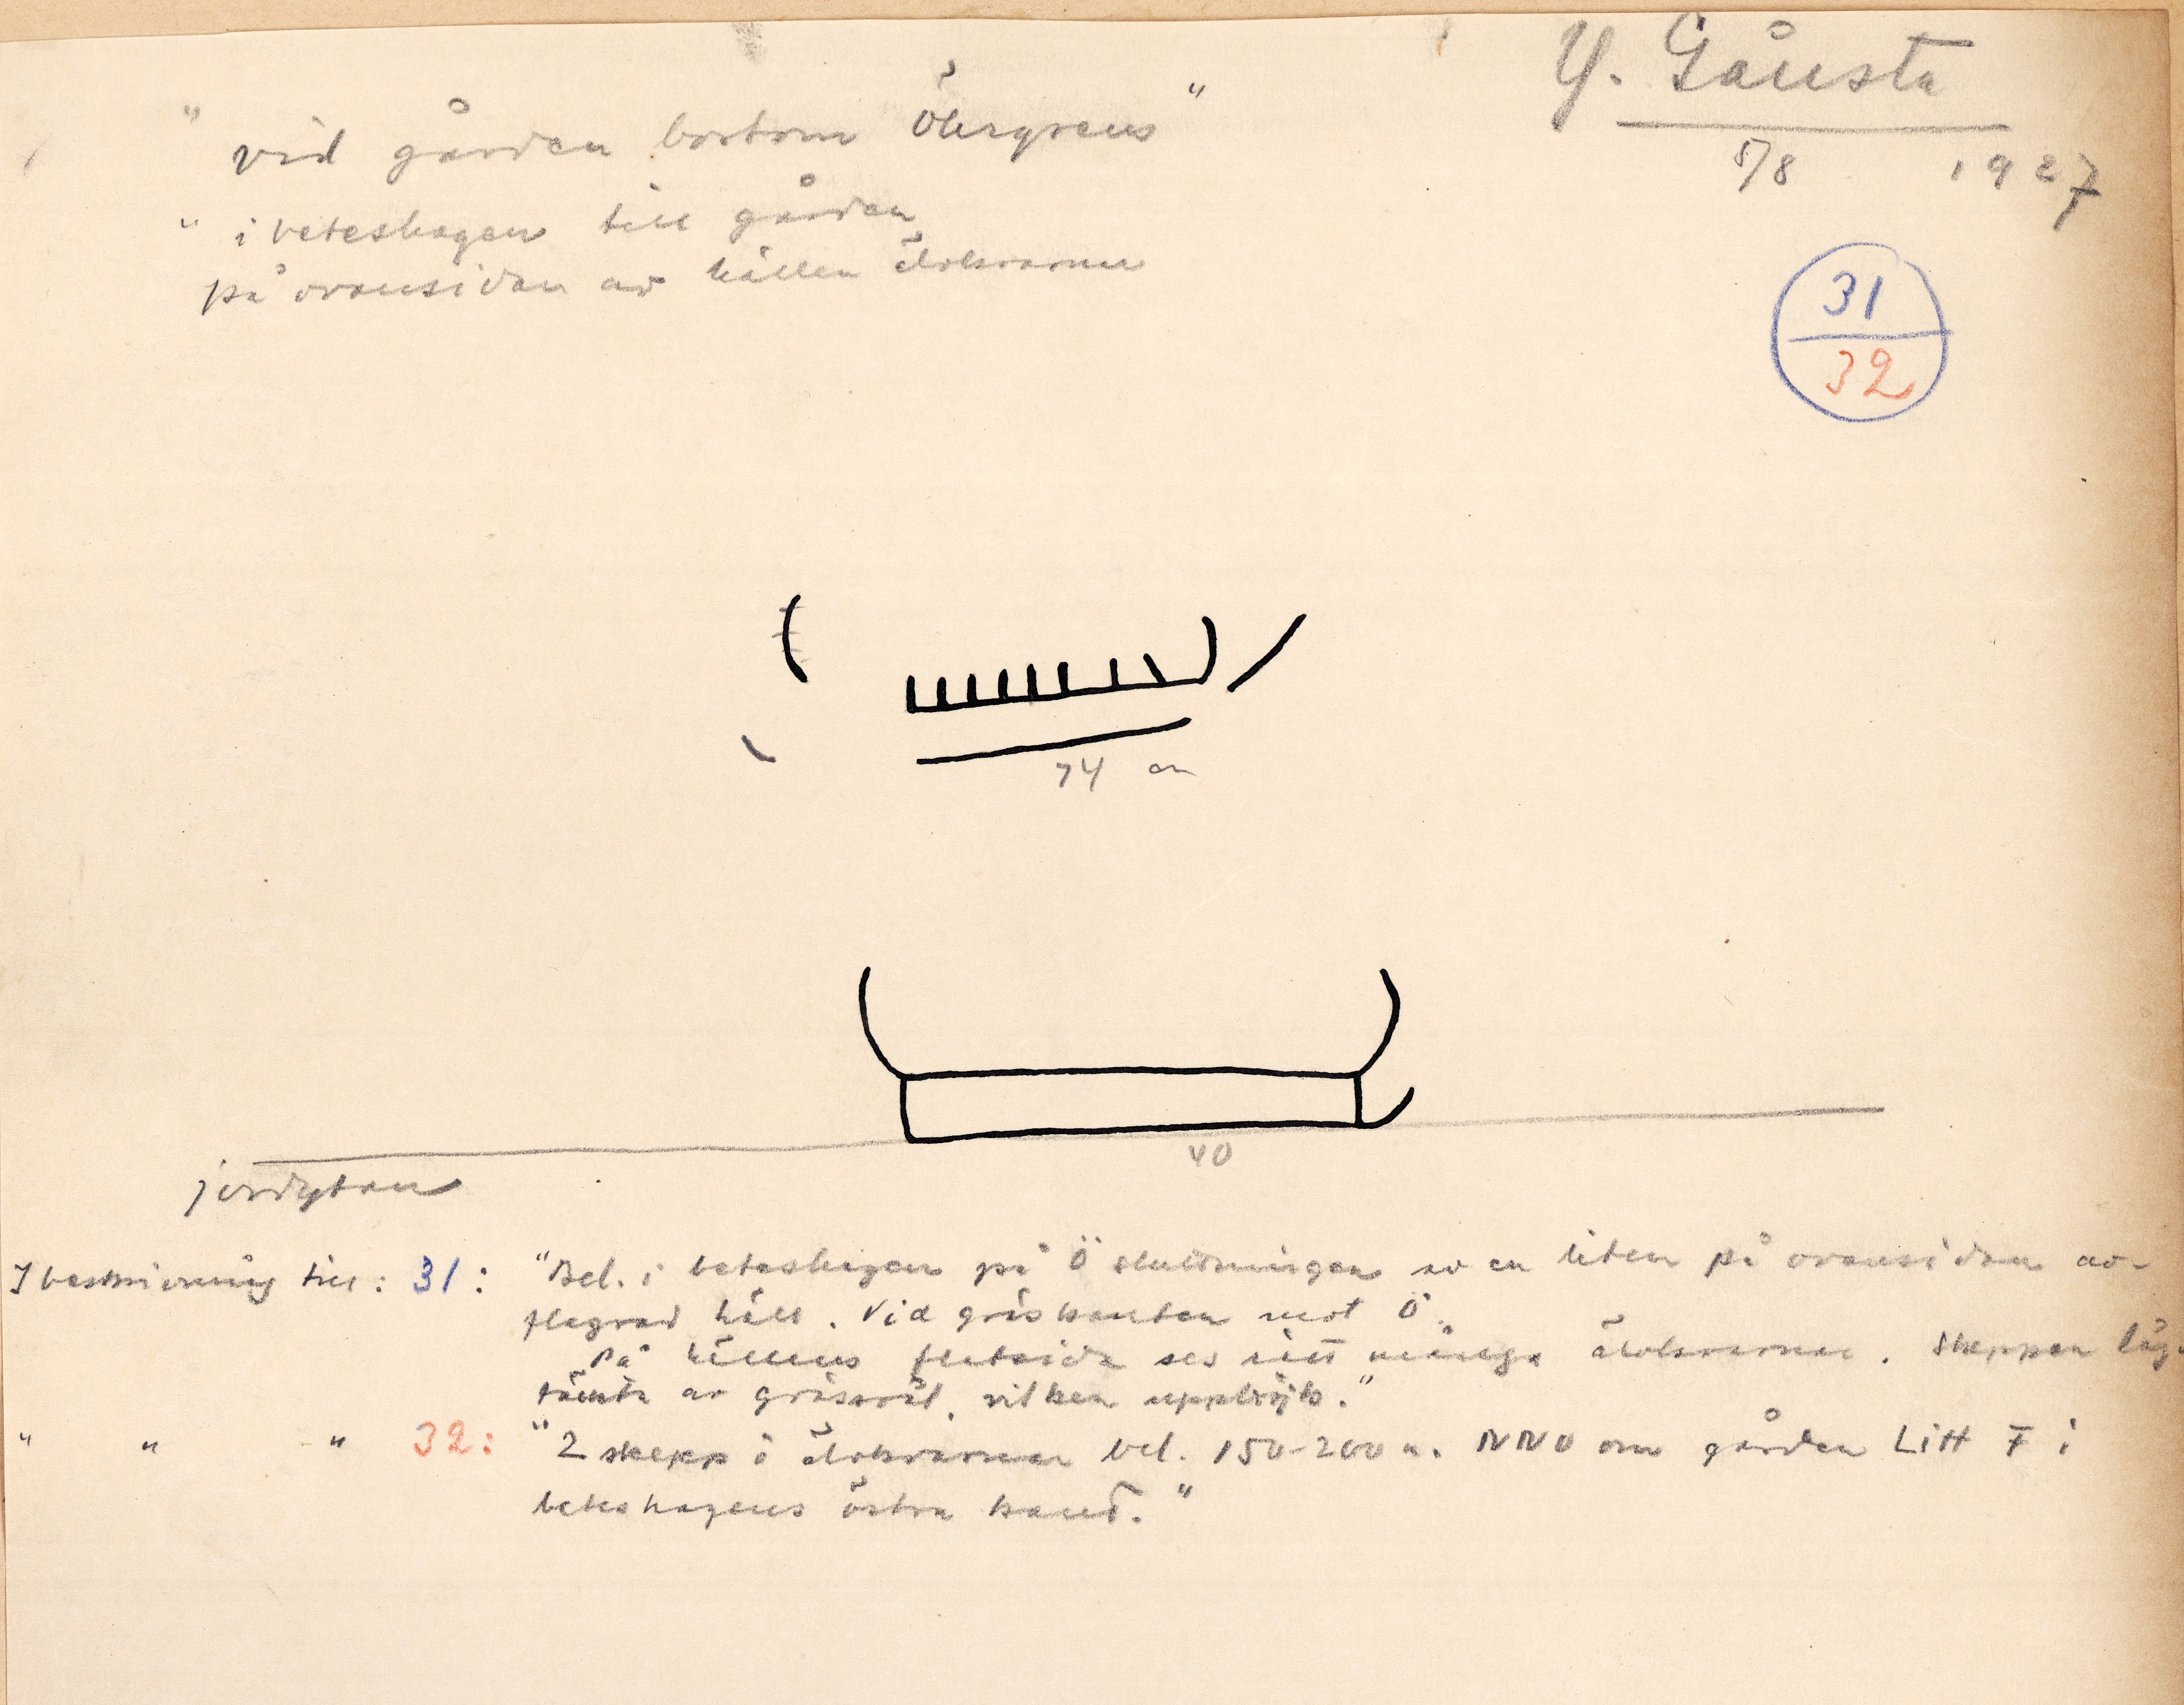 Y. Gånsta
5/8 1927
" vid gården bortom Öhrgrens "
" i beteshagen till gården
på ovansidan av hällen älvkvarnar
31
32
74 cm
40
jordytan
I beskrivning till : 31 : "Bel. i beteshagen på Ö sluttningen av en liten på ovansidan av-
flagrad häll. Vid gräskanten mot Ö.
På hällens flatsida ses rätt många älvkvarnar. Skeppen låg
täckta av gräsvål, vilken upplöjts."
" " " 32 : "2 skepp o älvkvarnar bel. 150-200 m. NNO om gården Litt F i
beteshagens östra kant."